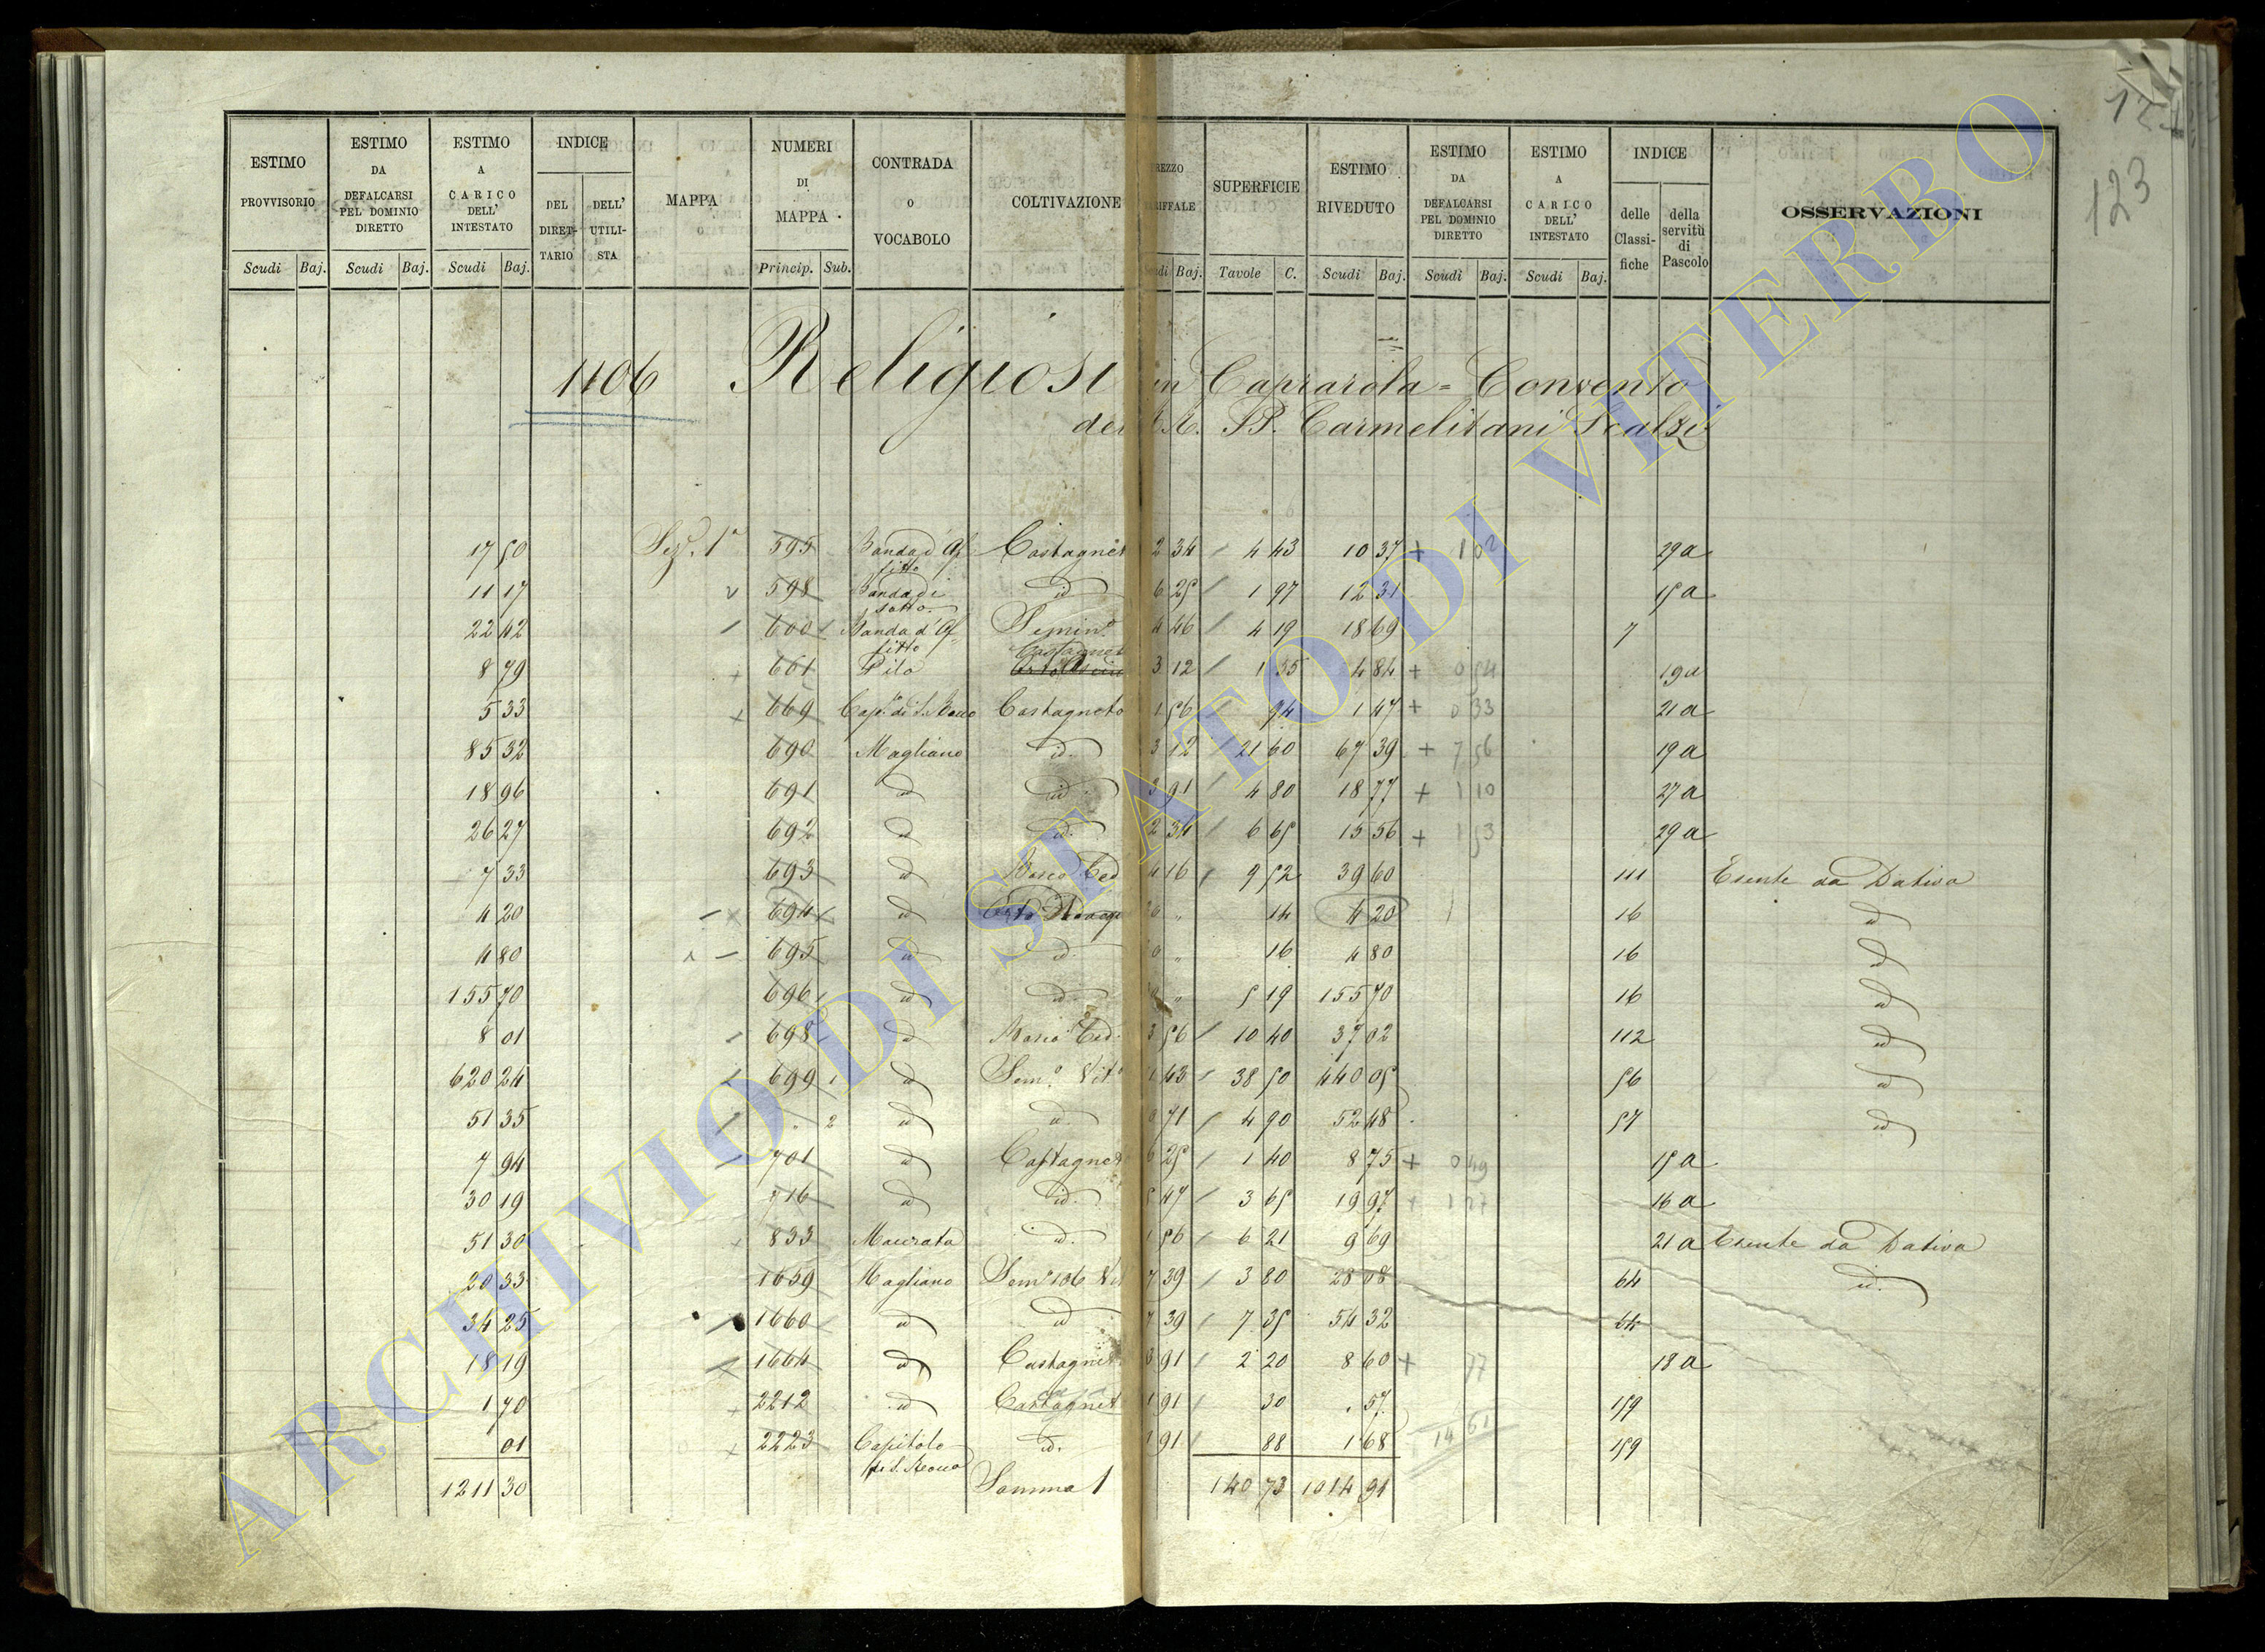 122
123
ESTIMO PROVVISORIO Scudi Baj.
ESTIMO DA DEFALCARSI PEL DOMINIO DIRETTO Scudi Baj.
ESTIMO A CARICO DELL' INTESTATO Scudi Baj.
INDICE DEL DIRET-TARIO DELL' UTILI-STA
MAPPA
NUMERI DI MAPPA Princip. Sub.
CONTRADA O VOCABOLO
COLTIVAZIONE
REZZO RIFFALE Baj.
SUPERFICIE Tavole C.
ESTIMO RIVEDUTO Scudi Baj.
ESTIMO DA DEFALCARSI PEL DOMINIO DIRETTO Scudi Baj.
ESTIMO A CARICO DELL' INTESTATO Scudi Baj.
INDICE delle Classi-fiche della servitù di Pascolo
OSSERVAZIONI
1106 Religiosi in Caprarola = Convento
dei RR. PP. Carmelitani Scalzi
17 50 Sez. 1a 595 Banda d'Affitto Castagnet 2 34 4 43 10 37 + 1 02 29 a
11 17 598 Banda di sotto id 6 25 1 97 12 31 15 a
22 42 600 Banda d'Affitto Semino 4 46 4 19 18 69 7
8 79 661 Pilo Castagnet 3 12 1 55 4 84 + 0 54 19 a
5 33 669 Capo. di S. Rocco Castagneto 1 56 94 1 47 + 0 33 21 a
85 32 690 Magliano id. 3 12 21 60 67 39 + 7 56 19 a
18 96 691 id id. 3 91 4 80 18 77 + 1 10 27 a
26 27 692 id id. 2 34 6 65 15 56 + 1 53 29 a
7 33 693 id Bosco Ced 4 16 9 52 39 60 111 Esente da Dativa
4 20 694 id Orto 14 4 20 16 id
4 80 695 id id. 16 4 80 16 id
155 70 696 id id. 5 19 155 70 16 id
8 01 698 id Bosco Ced. 3 56 10 40 37 02 112 id
620 24 699 1 id Semo. Vito 1 43 38 50 440 05 56 id
51 35 " 2 id id. 0 71 4 90 52 48 57 id
7 94 701 id Castagnet 6 25 1 40 8 75 + 0 49 15 a
30 19 716 id id. 5 47 3 65 19 97 + 1 27 16 a
51 30 833 Macrata id. 1 56 6 21 9 69 21 a Esente da Dativa
20 33 1659 Magliano Semo Vit 7 39 3 80 28 08 64 id.
34 25 1660 id id 7 39 7 35 54 32 64
18 19 1664 id Castagnet 3 91 2 20 8 60 + 77 18 a
1 70 2212 id Castagnet 1 91 30 . 57 159
01 2223 Capitolo di S. Rocco id. 1 91 88 1 68 14 61 159
1211 30 Somma 1 140 73 1014 91
ARCHIVIO DI STATO DI VITERBO